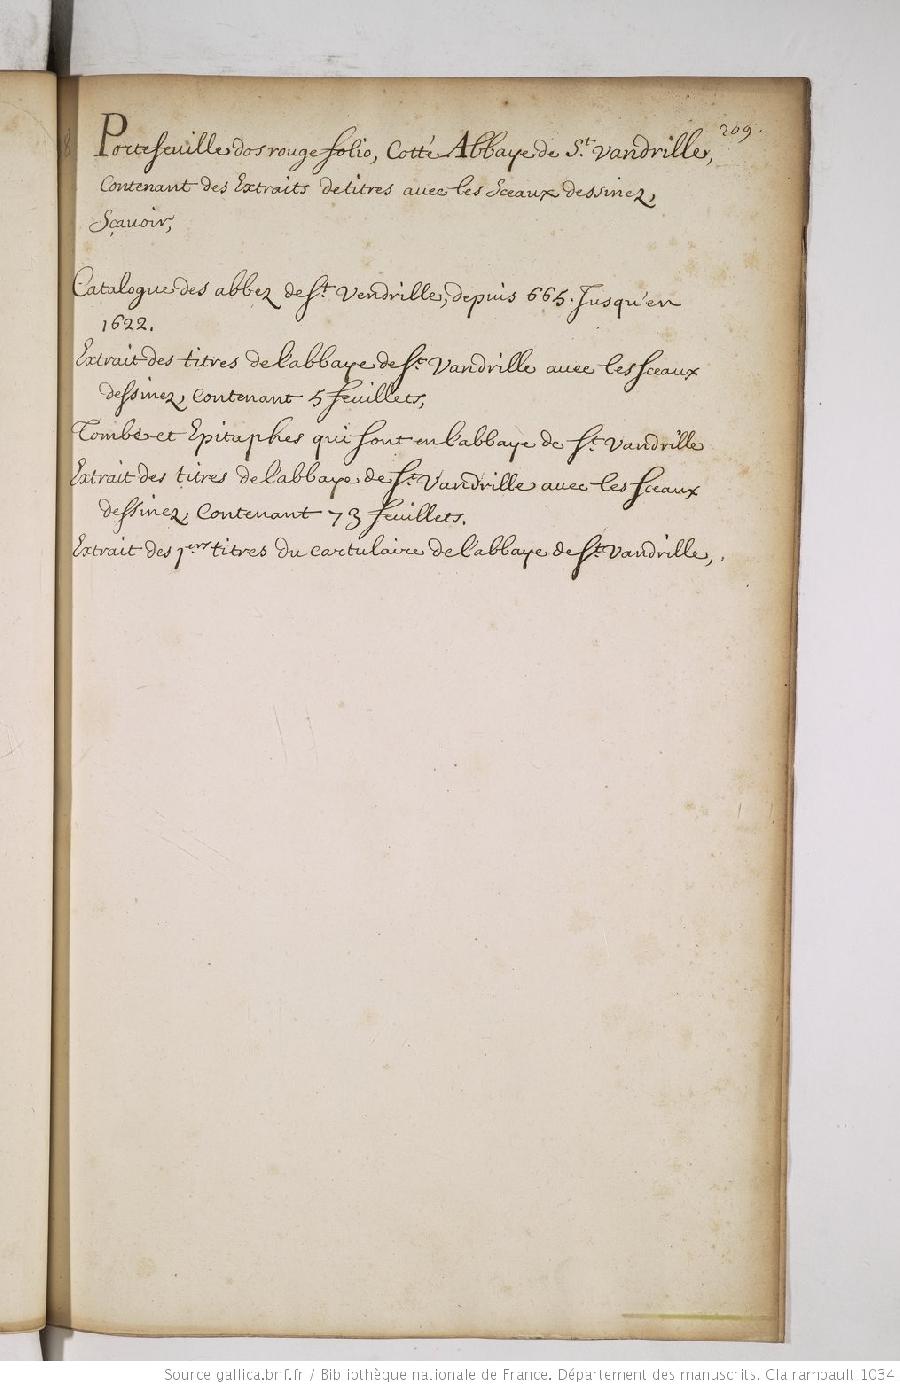 209.
Portefeuille dos rouge folio, Cotté Abbaye de St. Vandrille,
Contenant des Extraits de titres avec les Sceaux dessinez,
Sçavoir,
Catalogue des abbez de St. Vendrille, depuis 665. Jusqu'en
1622.
Extrait des titres de l'abbaye de St. Vandrille avec les sceaux
dessinez, contenant 5 feuillets,
Tombe et Epitaphes qui sont en l'abbaye de St. Vandrille
Extrait des titres de l'abbaye de St. Vandrille avec les sceaux
dessinez, contenant 73 feuillets.
Extrait des 1ers titres du cartulaire de l'abbaye de St. Vandrille,.
Source gallica.bnf.fr / Bibliothèque nationale de France. Département des manuscrits. Clairambault 1034